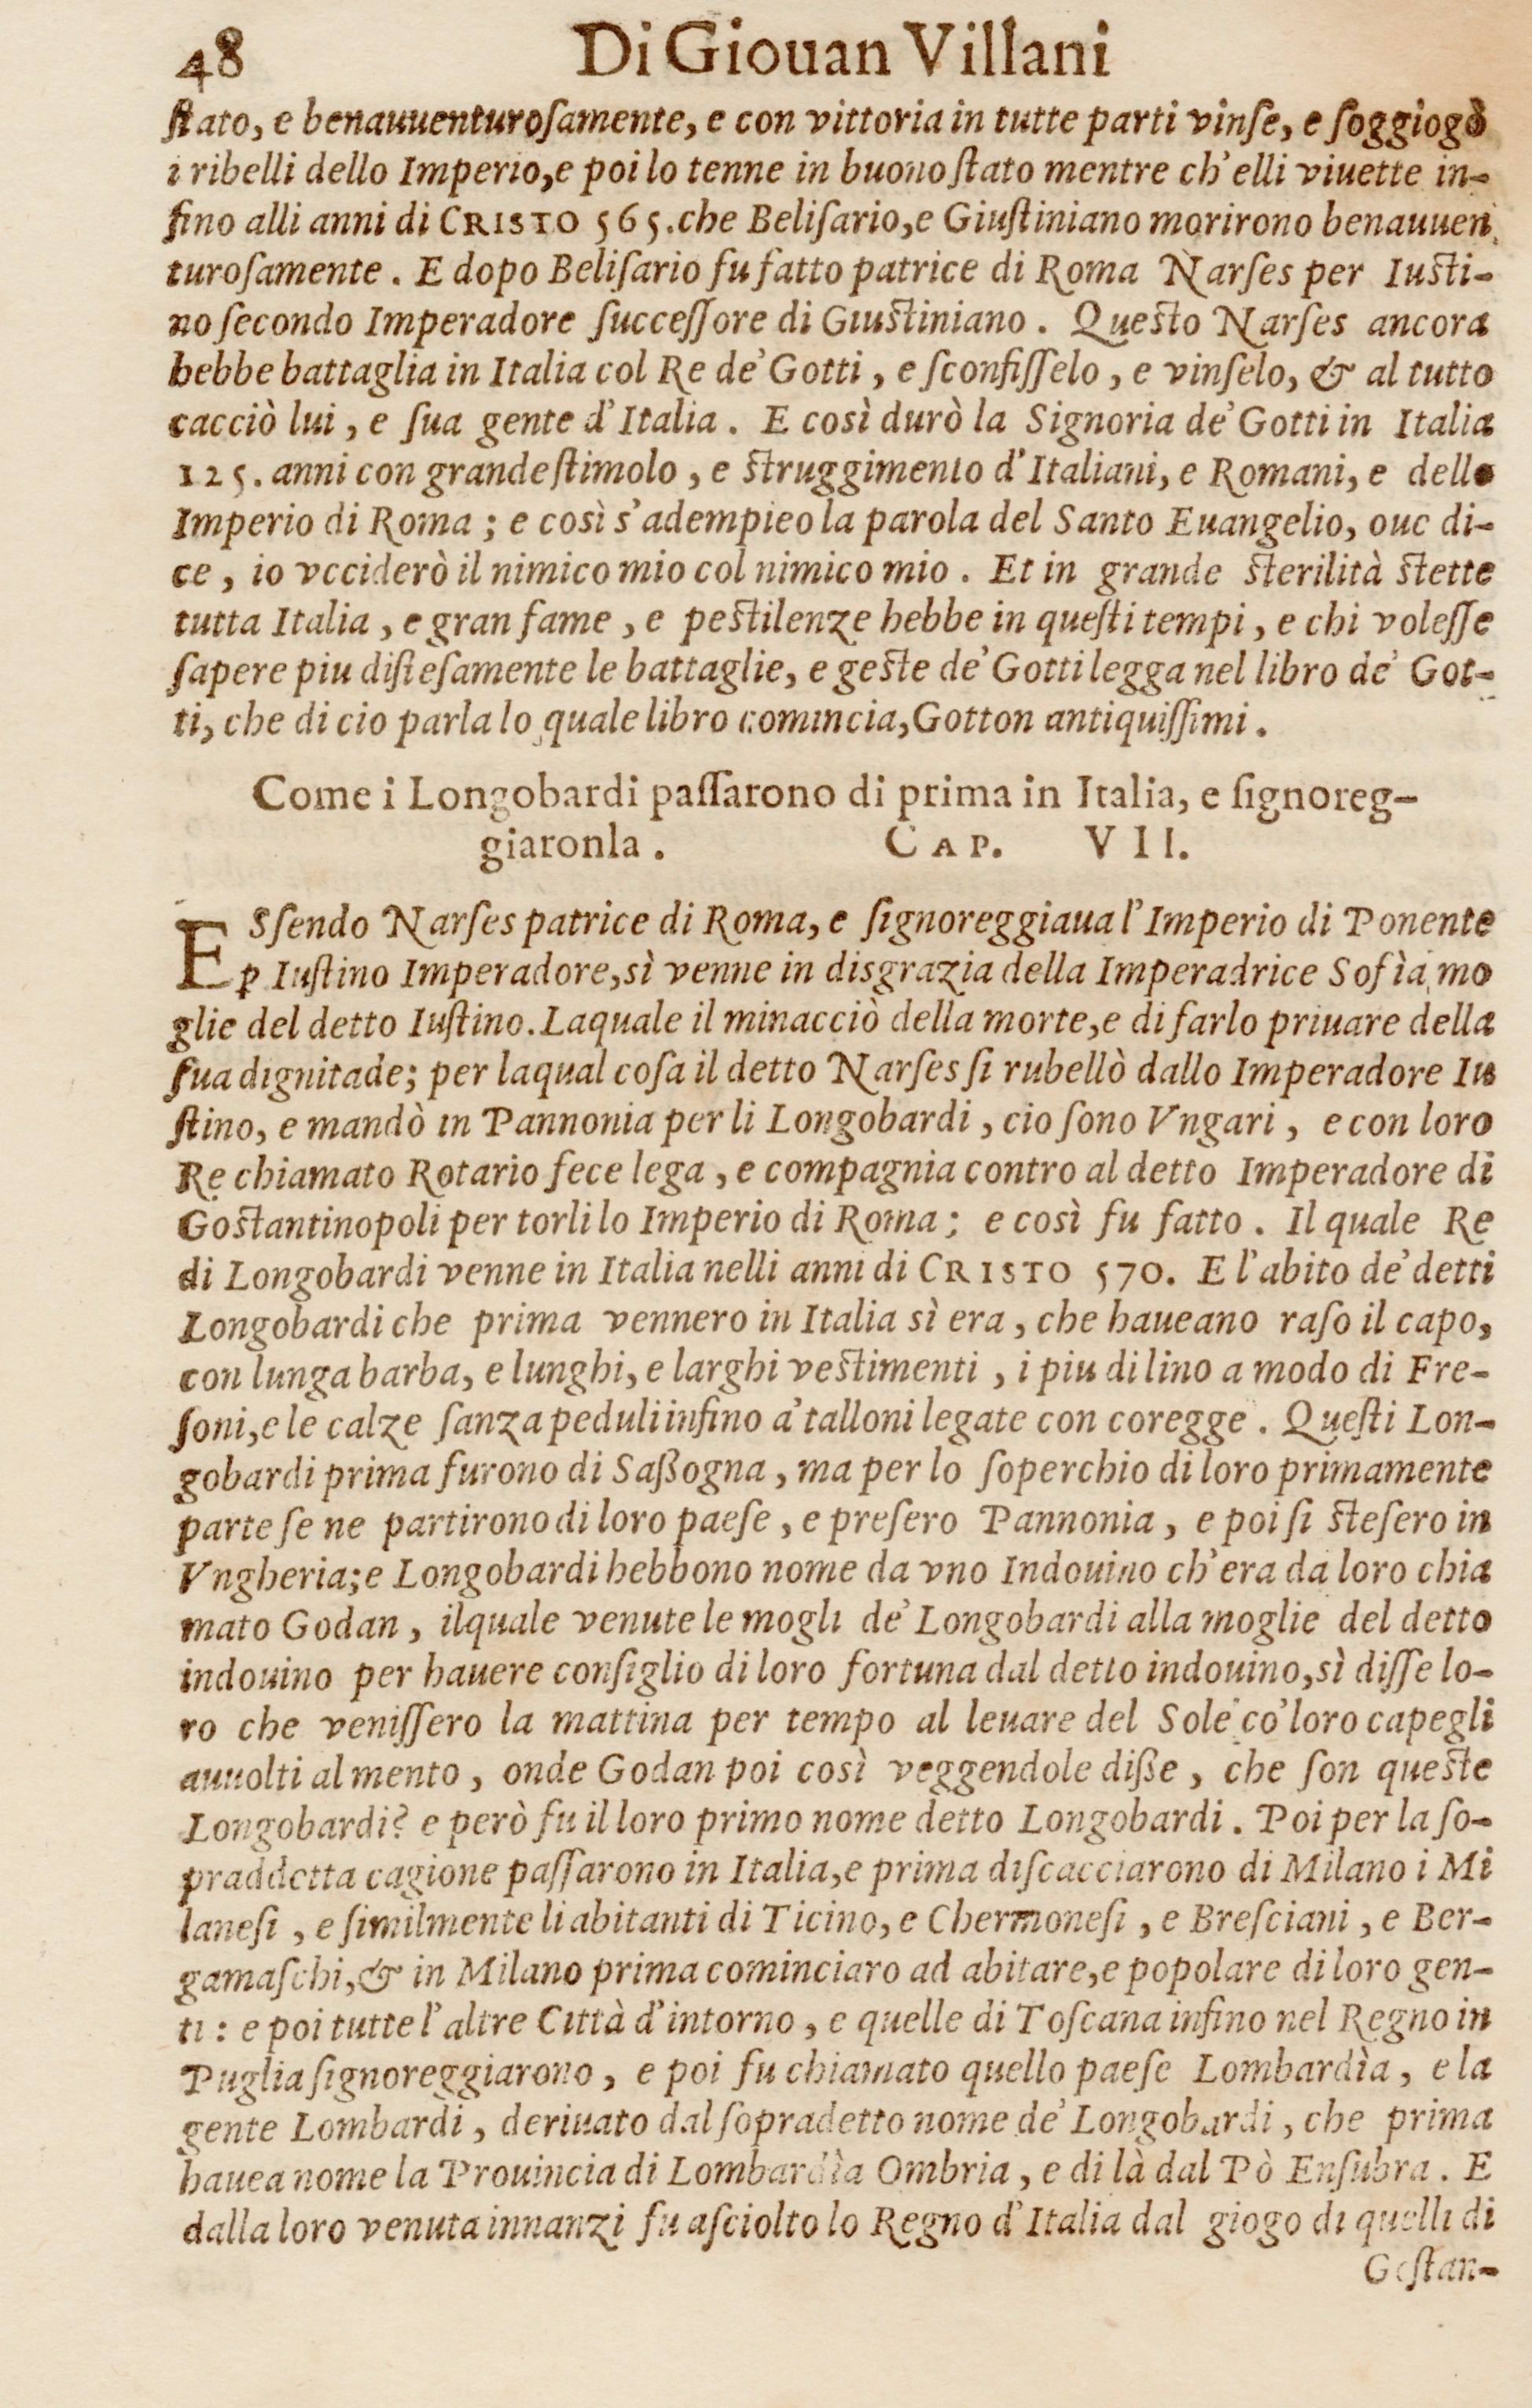 48 Di Giouan Villani
ſtato, e benauuenturoſamente, e con vittoria in tutte parti vinſe, e ſoggiogò
i ribelli dello Imperio, e poi lo tenne in buono ſtato mentre ch'elli viuette in-
fino alli anni di CRISTO 565. che Beliſario, e Giuſtiniano morirono benauuen
turoſamente. E dopo Beliſario fu fatto patrice di Roma Narſes per Iuſti-
no ſecondo Imperadore ſucceſſore di Giuſtiniano. Queſto Narſes ancora
hebbe battaglia in Italia col Re de' Gotti, e ſconfiſſelo, e vinſelo, & al tutto
cacciò lui, e ſua gente d'Italia. E così durò la Signoria de' Gotti in Italia
125. anni con grande ſtimolo, e ſtruggimento d'Italiani, e Romani, e dello
Imperio di Roma; e così s'adempieo la parola del Santo Euangelio, oue di-
ce, io vcciderò il nimico mio col nimico mio. Et in grande ſterilità ſtette
tutta Italia, e gran fame, e peſtilenze hebbe in queſti tempi, e chi voleſſe
ſapere piu diſteſamente le battaglie, e geſte de' Gotti legga nel libro de' Got-
ti, che di cio parla lo quale libro comincia, Gotton antiquiſſimi.
Come i Longobardi paſſarono di prima in Italia, e ſignoreg-
giaronla. CAP. VII.
ESſendo Narſes patrice di Roma, e ſignoreggiaua l'Imperio di Ponente
ꝑ Iuſtino Imperadore, sì venne in disgrazia della Imperadrice Sofìa mo
glie del detto Iuſtino. Laquale il minacciò della morte, e di farlo priuare della
ſua dignitade; per laqual coſa il detto Narſes ſi rubellò dallo Imperadore Iu
ſtino, e mandò in Pannonia per li Longobardi, cio ſono Vngari, e con loro
Re chiamato Rotario fece lega, e compagnia contro al detto Imperadore di
Goſtantinopoli per torli lo Imperio di Roma; e così fu fatto. Il quale Re
di Longobardi venne in Italia nelli anni di CRISTO 570. E l'abito de' detti
Longobardi che prima vennero in Italia sì era, che haueano raſo il capo,
con lunga barba, e lunghi, e larghi veſtimenti, i piu di lino a modo di Fre-
ſoni, e le calze ſanza peduli infino a' talloni legate con coregge. Queſti Lon-
gobardi prima furono di Saßogna, ma per lo ſoperchio di loro primamente
parte ſe ne partirono di loro paeſe, e preſero Pannonia, e poi ſi ſteſero in
Vngheria; e Longobardi hebbono nome da vno Indouino ch'era da loro chia
mato Godan, ilquale venute le mogli de' Longobardi alla moglie del detto
indouino per hauere conſiglio di loro fortuna dal detto indouino, sì diſſe lo-
ro che veniſſero la mattina per tempo al leuare del Sole co' loro capegli
auuolti al mento, onde Godan poi così veggendole diße, che ſon queſte
Longobardi? e però fu il loro primo nome detto Longobardi. Poi per la ſo-
praddetta cagione paſſarono in Italia, e prima diſcacciarono di Milano i Mi
laneſi, e ſimilmente li abitanti di Ticino, e Chermoneſi, e Breſciani, e Ber-
gamaſchi, & in Milano prima cominciaro ad abitare, e popolare di loro gen-
ti: e poi tutte l'altre Città d'intorno, e quelle di Toſcana infino nel Regno in
Puglia ſignoreggiarono, e poi fu chiamato quello paeſe Lombardìa, e la
gente Lombardi, deriuato dal ſopradetto nome de' Longobardi, che prima
hauea nome la Prouincia di Lombardìa Ombria, e di là dal Pò Enſubra. E
dalla loro venuta innanzi fu aſciolto lo Regno d'Italia dal giogo di quelli di
Goſtan-